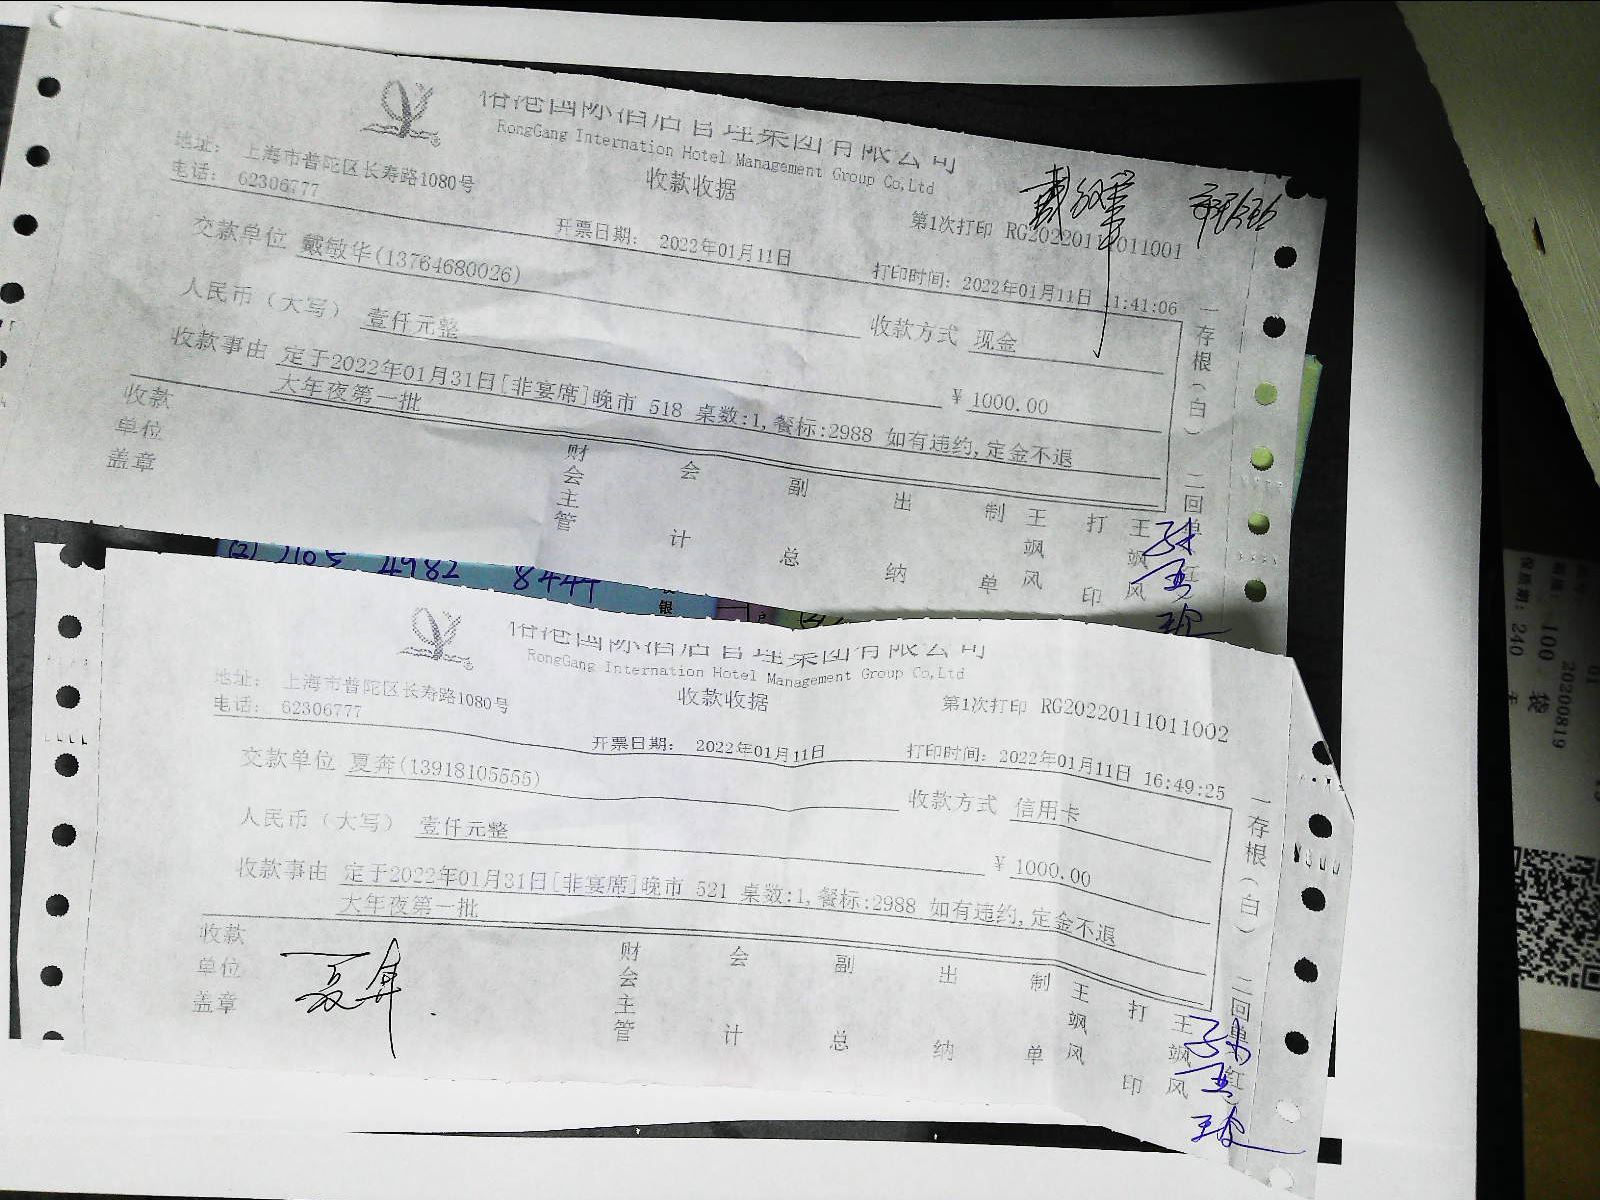 国际酒店管理集团有限公司
RongGang Internation Hotel Management Group Co,Ltd
地址： 上海市普陀区长寿路1080号
电话： 62306777
收款收据
第1次打印 RG20220111011001
开票日期： 2022年01月11日
打印时间：2022年01月11日 11:41:06
交款单位 戴敏华(13764680026)
收款方式 现金
人民币（大写） 壹仟元整
¥ 1000.00
收款事由 定于2022年01月31日[非宴席]晚市 518 桌数:1,餐标:2988 如有违约,定金不退
大年夜第一批
收款单位盖章
财会主管
会计
副总
出纳
制单
王飒风
打印
王飒风
一存根（白） 二回单（红）
4982 8444
银
国际酒店管理集团有限公司
RongGang Internation Hotel Management Group Co,Ltd
地址： 上海市普陀区长寿路1080号
电话： 62306777
收款收据
第1次打印 RG20220111011002
开票日期： 2022年01月11日
打印时间：2022年01月11日 16:49:25
交款单位 夏奔(13918105555)
收款方式 信用卡
人民币（大写） 壹仟元整
¥ 1000.00
收款事由 定于2022年01月31日[非宴席]晚市 521 桌数:1,餐标:2988 如有违约,定金不退
大年夜第一批
收款单位盖章
夏奔
财会主管
会计
副总
出纳
制单
王飒风
打印
王飒风
一存根（白） 二回单（红）
20200819
100 袋
保质期：240 天